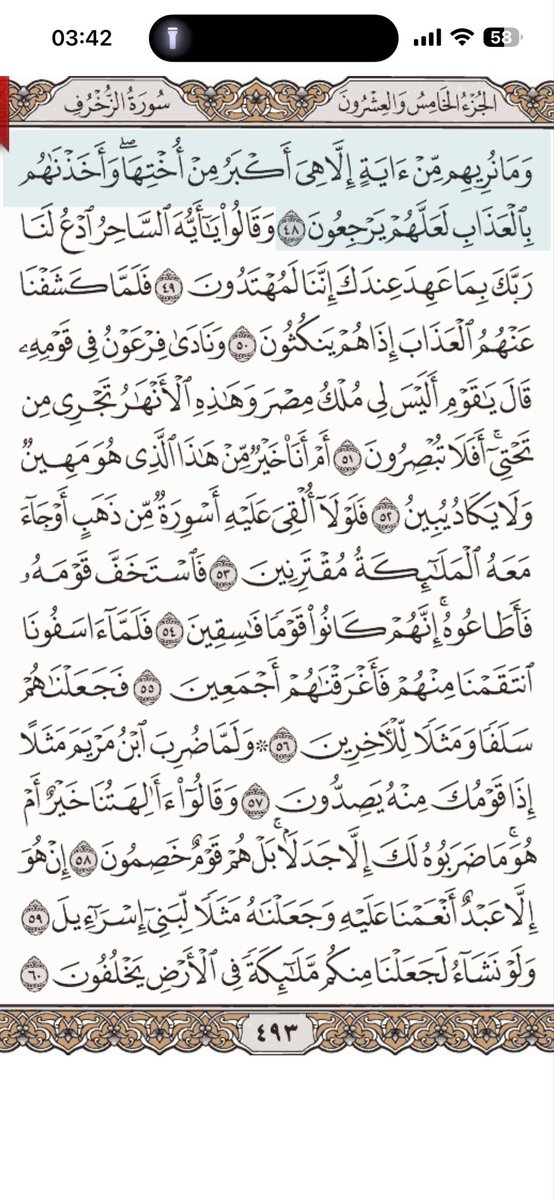 03:42
58
الجزء الخامس والعشرون سورة الزخرف
وَمَا نُرِيهِم مِّنْ ءَايَةٍ إِلَّا هِىَ أَكْبَرُ مِنْ أُخْتِهَا ۖ وَأَخَذْنَٰهُم
بِٱلْعَذَابِ لَعَلَّهُمْ يَرْجِعُونَ ٤٨ وَقَالُوا۟ يَٰٓأَيُّهَ ٱلسَّاحِرُ ٱدْعُ لَنَا
رَبَّكَ بِمَا عَهِدَ عِندَكَ إِنَّنَا لَمُهْتَدُونَ ٤٩ فَلَمَّا كَشَفْنَا
عَنْهُمُ ٱلْعَذَابَ إِذَا هُمْ يَنكُثُونَ ٥٠ وَنَادَىٰ فِرْعَوْنُ فِى قَوْمِهِۦ
قَالَ يَٰقَوْمِ أَلَيْسَ لِى مُلْكُ مِصْرَ وَهَٰذِهِ ٱلْأَنْهَٰرُ تَجْرِى مِن
تَحْتِىٓ ۖ أَفَلَا تُبْصِرُونَ ٥١ أَمْ أَنَا۠ خَيْرٌ مِّنْ هَٰذَا ٱلَّذِى هُوَ مَهِينٌ
وَلَا يَكَادُ يُبِينُ ٥٢ فَلَوْلَآ أُلْقِىَ عَلَيْهِ أَسْوِرَةٌ مِّن ذَهَبٍ أَوْ جَآءَ
مَعَهُ ٱلْمَلَٰٓئِكَةُ مُقْتَرِنِينَ ٥٣ فَٱسْتَخَفَّ قَوْمَهُۥ
فَأَطَاعُوهُ ۚ إِنَّهُمْ كَانُوا۟ قَوْمًا فَٰسِقِينَ ٥٤ فَلَمَّآ ءَاسَفُونَا
ٱنتَقَمْنَا مِنْهُمْ فَأَغْرَقْنَٰهُمْ أَجْمَعِينَ ٥٥ فَجَعَلْنَٰهُمْ
سَلَفًا وَمَثَلًا لِّلْءَاخِرِينَ ٥٦ ۞ وَلَمَّا ضُرِبَ ٱبْنُ مَرْيَمَ مَثَلًا
إِذَا قَوْمُكَ مِنْهُ يَصِدُّونَ ٥٧ وَقَالُوٓا۟ ءَأَٰلِهَتُنَا خَيْرٌ أَمْ
هُوَ ۚ مَا ضَرَبُوهُ لَكَ إِلَّا جَدَلًۢا ۚ بَلْ هُمْ قَوْمٌ خَصِمُونَ ٥٨ إِنْ هُوَ
إِلَّا عَبْدٌ أَنْعَمْنَا عَلَيْهِ وَجَعَلْنَٰهُ مَثَلًا لِّبَنِىٓ إِسْرَٰٓءِيلَ ٥٩
وَلَوْ نَشَآءُ لَجَعَلْنَا مِنكُم مَّلَٰٓئِكَةً فِى ٱلْأَرْضِ يَخْلُفُونَ ٦٠
٤٩٣